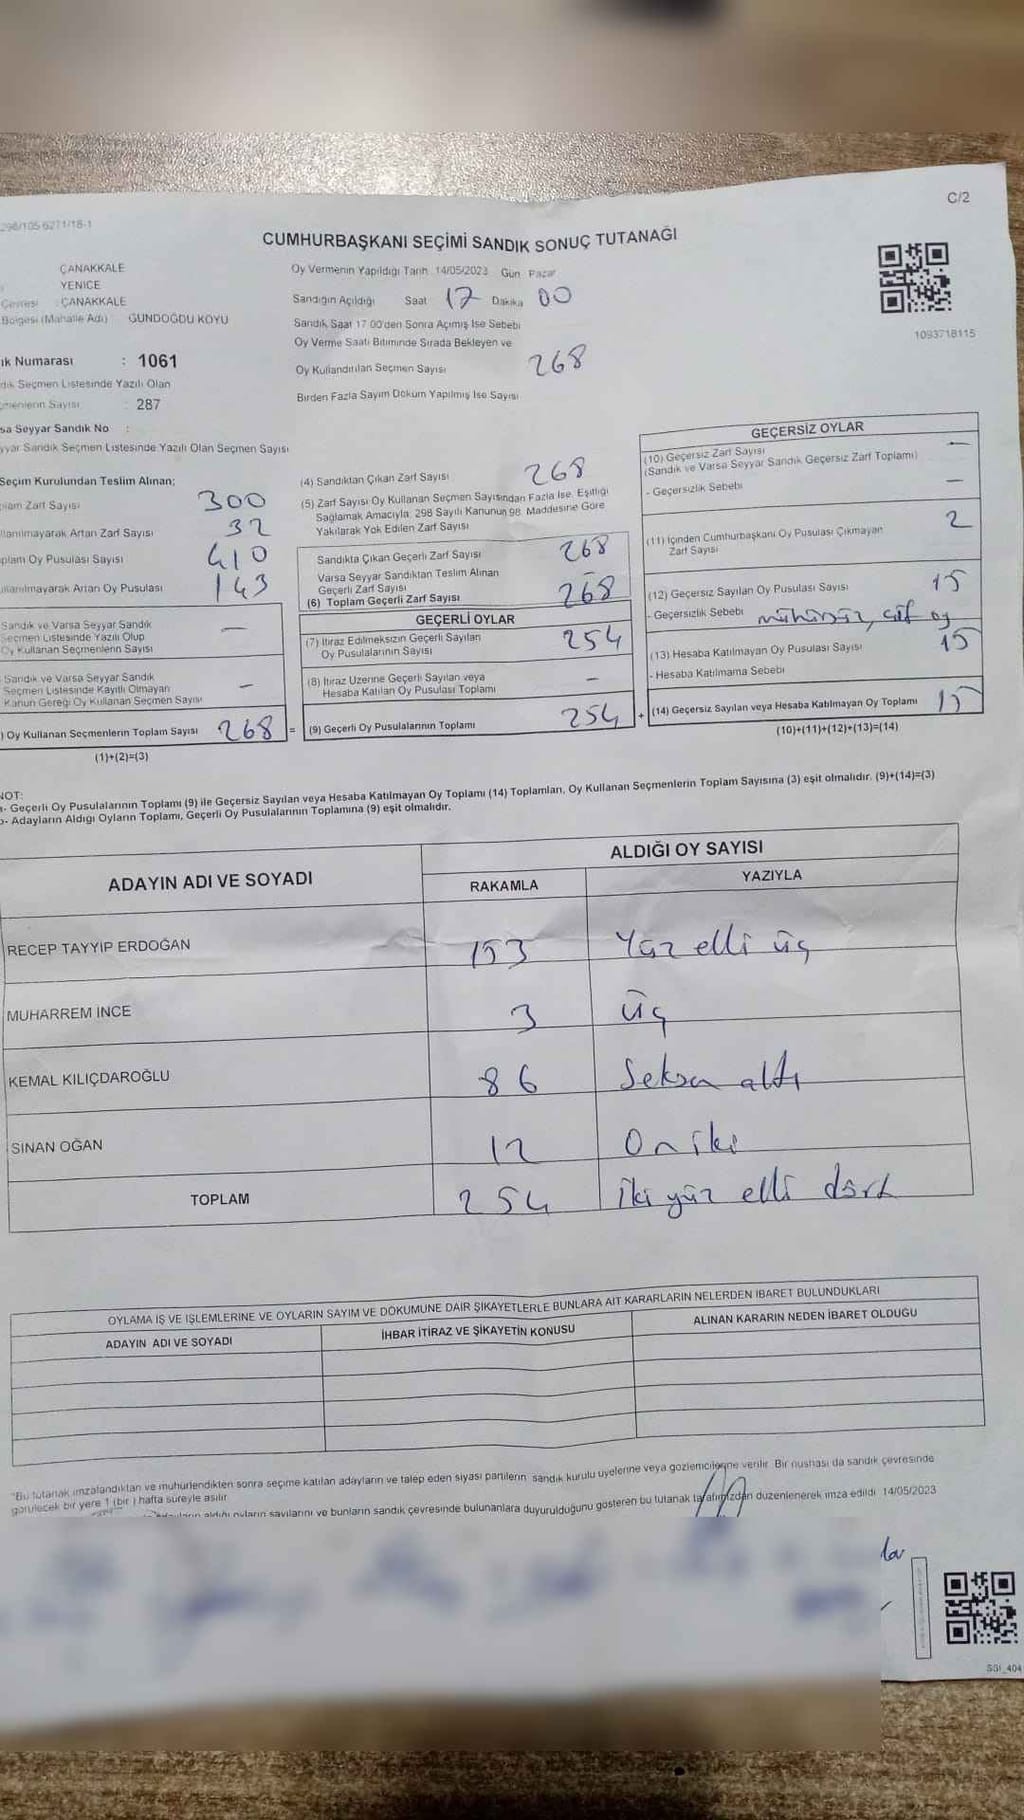 298/105 6271/18-1
C/2
CUMHURBAŞKANI SEÇİMİ SANDIK SONUÇ TUTANAĞI
ÇANAKKALE
YENİCE
Çevresi : ÇANAKKALE
Bölgesi (Mahalle Adı) GÜNDOĞDU KÖYÜ
ık Numarası : 1061
dık Seçmen Listesinde Yazılı Olan
çmenlerin Sayısı : 287
sa Seyyar Sandık No :
yyar Sandık Seçmen Listesinde Yazılı Olan Seçmen Sayısı
Oy Vermenin Yapıldığı Tarih 14/05/2023 Gün Pazar
Sandığın Açıldığı Saat 17 Dakika 00
Sandık Saat 17:00'den Sonra Açımış İse Sebebi
Oy Verme Saati Bitiminde Sırada Bekleyen ve
Oy Kullandırılan Seçmen Sayısı 268
Birden Fazla Sayım Döküm Yapılmış İse Sayısı
1093718115
Seçim Kurulundan Teslim Alınan;
plam Zarf Sayısı 300
llanılmayarak Artan Zarf Sayısı 32
plam Oy Pusulası Sayısı 410
ullanılmayarak Artan Oy Pusulası 143
Sandık ve Varsa Seyyar Sandık
Seçmen Listesinde Yazılı Olup
Oy Kullanan Seçmenlerin Sayısı —
Sandık ve Varsa Seyyar Sandık
Seçmen Listesinde Kayıtlı Olmayan
Kanun Gereği Oy Kullanan Seçmen Sayısı —
) Oy Kullanan Seçmenlerin Toplam Sayısı 268 =
(1)+(2)=(3)
(4) Sandıktan Çıkan Zarf Sayısı 268
(5) Zarf Sayısı Oy Kullanan Seçmen Sayısından Fazla İse, Eşitliği
Sağlamak Amacıyla, 298 Sayılı Kanunun 98. Maddesine Göre
Yakılarak Yok Edilen Zarf Sayısı
Sandıkta Çıkan Geçerli Zarf Sayısı 268
Varsa Seyyar Sandıktan Teslim Alınan
Geçerli Zarf Sayısı —
(6) Toplam Geçerli Zarf Sayısı 268
GEÇERLİ OYLAR
(7) İtiraz Edilmeksizin Geçerli Sayılan
Oy Pusulalarının Sayısı 254
(8) İtiraz Üzerine Geçerli Sayılan veya
Hesaba Katılan Oy Pusulası Toplamı —
(9) Geçerli Oy Pusulalarının Toplamı 254 +
GEÇERSİZ OYLAR
(10) Geçersiz Zarf Sayısı —
(Sandık ve Varsa Seyyar Sandık Geçersiz Zarf Toplamı)
- Geçersizlik Sebebi —
(11) İçinden Cumhurbaşkanı Oy Pusulası Çıkmayan
Zarf Sayısı 2
(12) Geçersiz Sayılan Oy Pusulası Sayısı 15
- Geçersizlik Sebebi mühürsüz, çift oy
(13) Hesaba Katılmayan Oy Pusulası Sayısı 15
- Hesaba Katılmama Sebebi
(14) Geçersiz Sayılan veya Hesaba Katılmayan Oy Toplamı 15
(10)+(11)+(12)+(13)=(14)
NOT:
a- Geçerli Oy Pusulalarının Toplamı (9) ile Geçersiz Sayılan veya Hesaba Katılmayan Oy Toplamı (14) Toplamları, Oy Kullanan Seçmenlerin Toplam Sayısına (3) eşit olmalıdır. (9)+(14)=(3)
b- Adayların Aldığı Oyların Toplamı, Geçerli Oy Pusulalarının Toplamına (9) eşit olmalıdır.
ADAYIN ADI VE SOYADI
ALDIĞI OY SAYISI
RAKAMLA YAZIYLA
RECEP TAYYİP ERDOĞAN 153 Yüz elli üç
MUHARREM İNCE 3 üç
KEMAL KILIÇDAROĞLU 86 Seksen altı
SİNAN OĞAN 12 On iki
TOPLAM 254 İki yüz elli dört
OYLAMA İŞ VE İŞLEMLERİNE VE OYLARIN SAYIM VE DÖKÜMÜNE DAİR ŞİKAYETLERLE BUNLARA AİT KARARLARIN NELERDEN İBARET BULUNDUKLARI
ADAYIN ADI VE SOYADI
İHBAR İTİRAZ VE ŞİKAYETİN KONUSU
ALINAN KARARIN NEDEN İBARET OLDUĞU
"Bu tutanak imzalandıktan ve mühürlendikten sonra seçime katılan adayların ve talep eden siyasi partilerin sandık kurulu üyelerine veya gözlemcilerine verilir. Bir nüshası da sandık çevresinde
görülecek bir yere 1 (bir ) hafta süreyle asılır
aldığı oyların sayılarını ve bunların sandık çevresinde bulunanlara duyurulduğunu gösteren bu tutanak tarafımızdan düzenlenerek imza edildi 14/05/2023
SSI_404